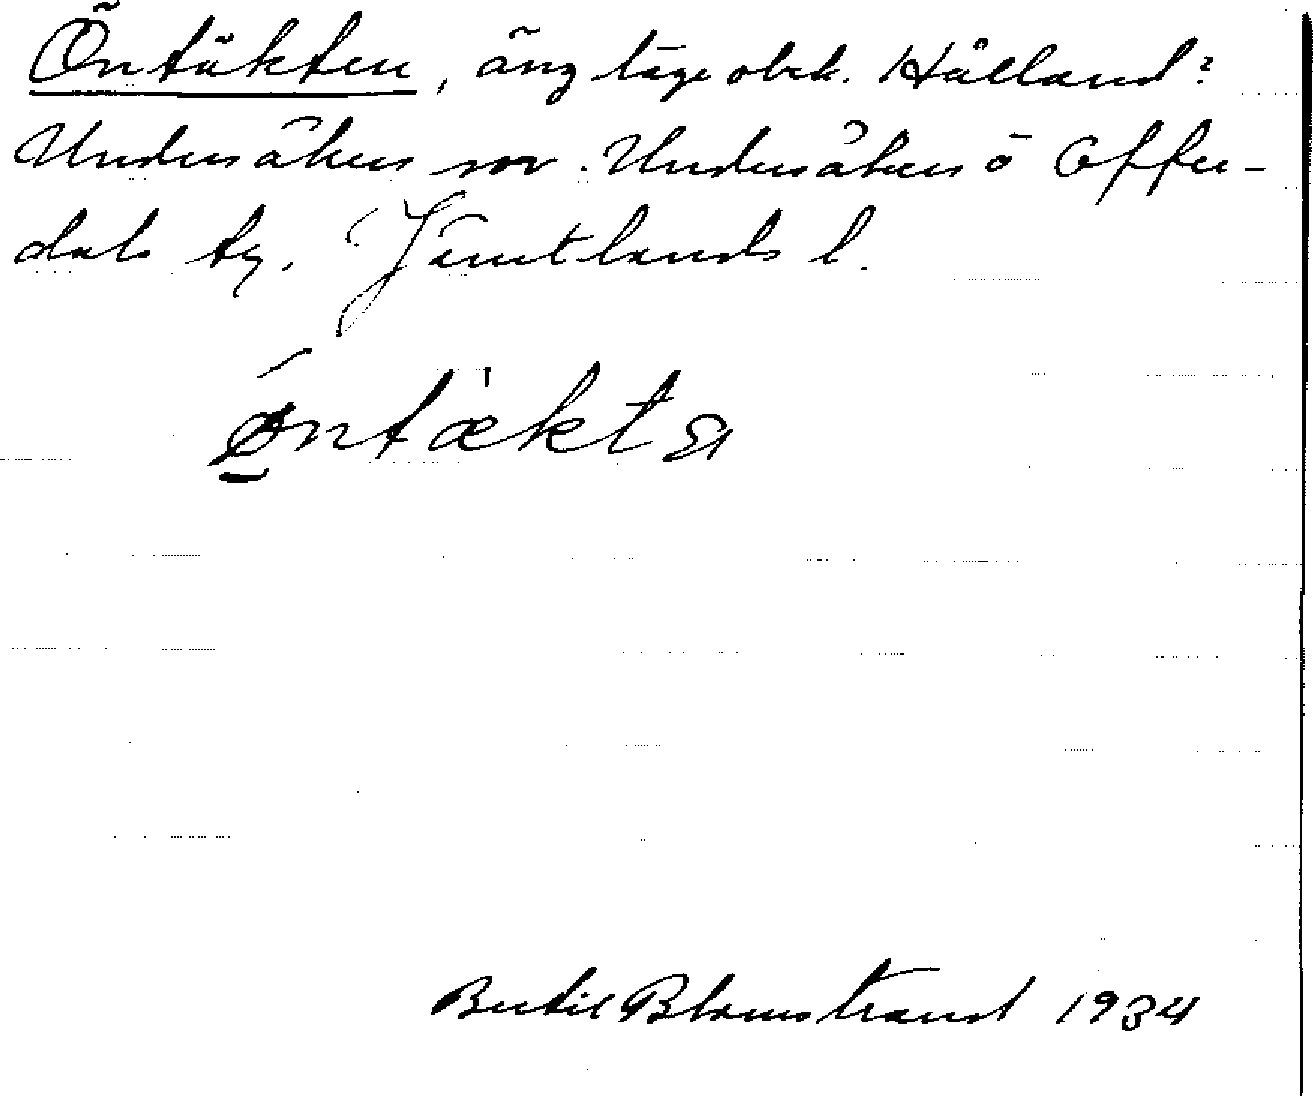 Öntäkten, äng läge obek. Hålland?
Undersåkers sn. Undersåkers o Offer-
dals tg. Jämtlands l.
öntækta
Bertil Blomstrand 1934